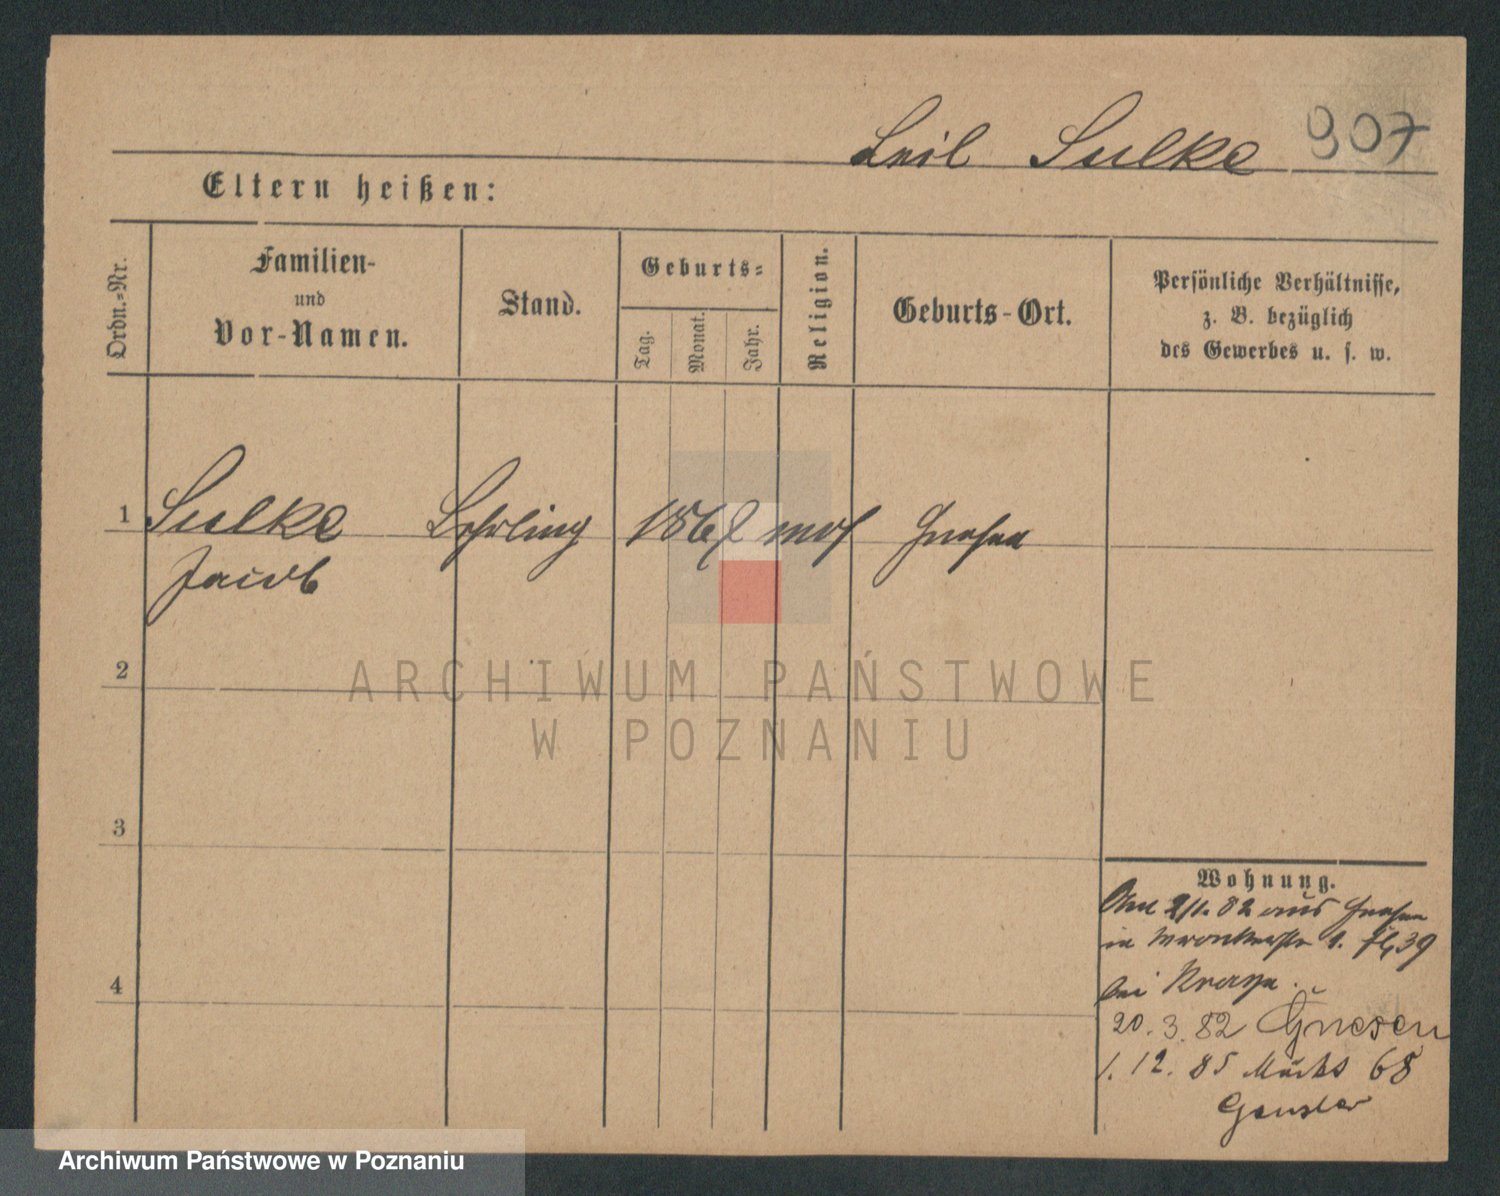 Leib Sulke 907
Eltern heißen:
Ordn.-Nr.
Familien-
und
Vor-Namen.
Stand.
Geburts-
Tag.
Monat.
Jahr.
Religion.
Geburts-Ort.
Persönliche Verhältnisse,
z. B. bezüglich
des Gewerbes u. s. w.
1 Sulke Lehrling 1867 mos Gnesen
Jacob
2
3
4
ARCHIWUM PAŃSTWOWE
W POZNANIU
Wohnung.
2/1. 82 aus Gnesen
in 1. 39
bei
20. 3. 82 Gnesen
1. 12. 85 Markt 68
Archiwum Państwowe w Poznaniu